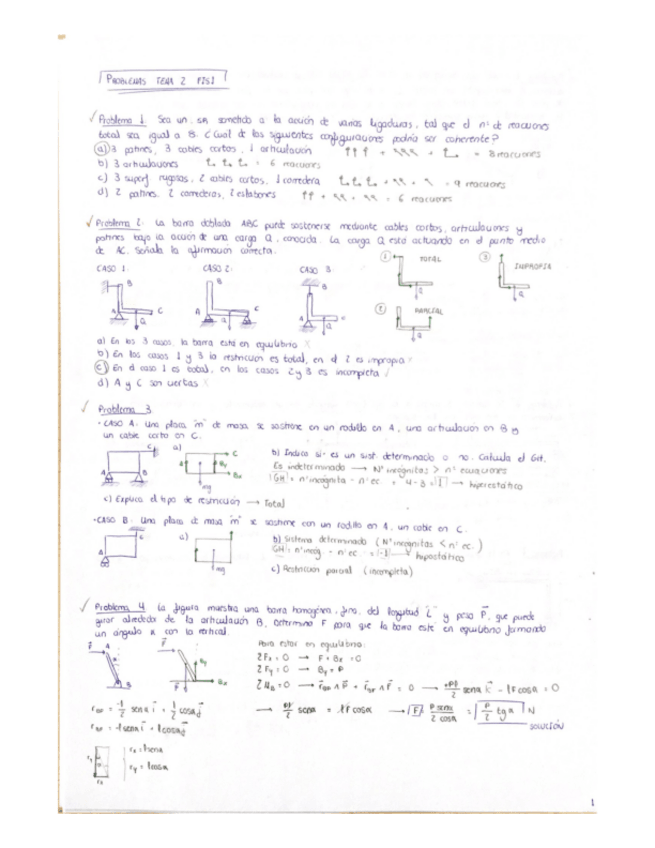 PROBLEMAS TEMA 2 FIS1
Problema 1. Sea un SR sometido a la acción de varias ligaduras, tal que el nº de reacciones
total sea igual a 8. ¿Cual de las siguientes configuraciones podría ser coherente?
a) 3 patines, 3 cables cortos, 1 articulación = 8 reacciones
b) 3 articulaciones = 6 reacciones
c) 3 superf rugosas, 2 cables cortos, 1 corredera = 9 reacciones
d) 2 patines, 2 correderas, 2 eslabones = 6 reacciones
Problema 2. La barra doblada ABC puede sostenerse mediante cables cortos, articulaciones y
patines bajo la acción de una carga Q, conocida. La carga Q está actuando en el punto medio
de AC. Señala la afirmación correcta.
CASO 1: CASO 2: CASO 3:
① TOTAL ③ IMPROPIA
② PARCIAL
a) En los 3 casos, la barra está en equilibrio X
b) En los casos 1 y 3 la restricción es total, en el 2 es impropia
c) En el caso 1 es total, en los casos 2 y 3 es incompleta
d) A y C son ciertas X
Problema 3
· CASO A: Una placa "m" de masa se sostiene en un rodillo en A, una articulación en B y
un cable corto en C.
a) b) Indica si es un sist. determinado o no. Calcula el GH.
Es indeterminado → Nº incógnitas > nº ecuaciones
GH = nº incognita - nº ec. = 4 - 3 = 1 → hiperestático
c) Explica el tipo de restricción → Total
· CASO B: Una placa de masa "m" se sostiene con un rodillo en A, un cable en C.
a) b) Sistema determinado (Nº incognitas < nº ec.)
GH: nº incog. - nº ec. = -1 → hipostático
c) Restricción parcial (incompleta)
Problema 4. La figura muestra una barra homogénea, fina, de longitud L y peso P, que puede
girar alrededor de la articulación B, Determina F para que la barra esté en equilibrio formando
un ángulo α con la vertical.
Para estar en equilibrio:
ΣFx = 0 → F + Bx = 0
ΣFy = 0 → By = P
ΣMB = 0
= P/2 tg α N
SOLUCIÓN
1